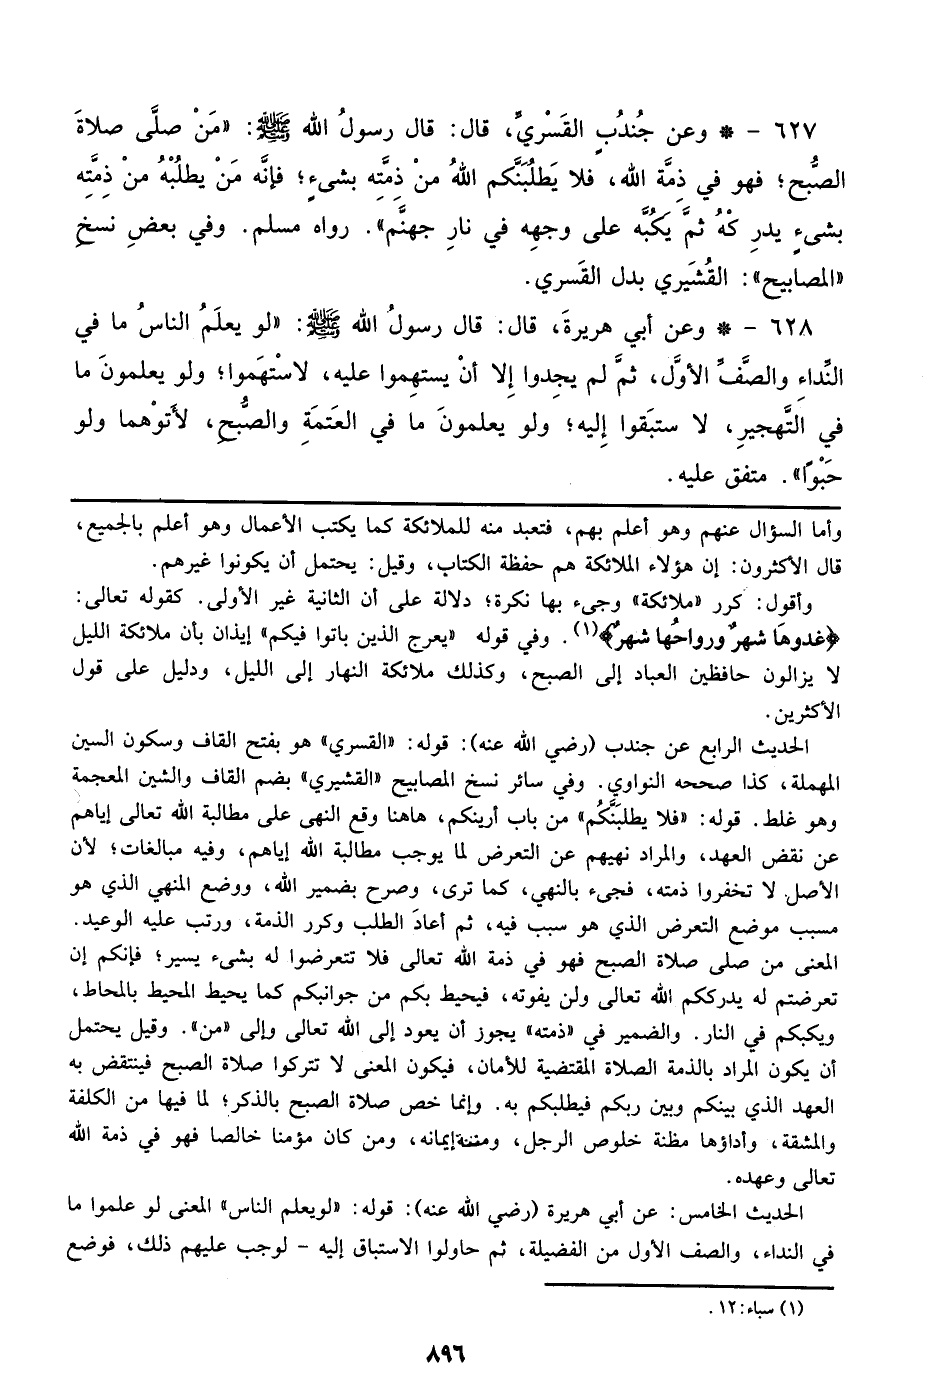 ٦٢٧ – * وعن جُندُبٍ القَسْريِّ، قال: قال رسولُ الله ﷺ: «مَنْ صلَّى صلاةَ
الصُّبح؛ فهو في ذِمَّة الله، فلا يَطلُبَنَّكم اللهُ منْ ذِمتِه بشىءٍ؛ فإنَّه مَنْ يطلُبْهُ منْ ذِمتِه
بشىءٍ يدرِ كْهُ ثمَّ يَكُبَّه على وجهِه في نارِ جهنَّم». رواه مسلم. وفي بعضِ نسخِ
«المصابيح»: القُشَيري بدل القَسري.
٦٢٨ – * وعن أبي هريرةَ، قال: قال رسولُ الله ﷺ: «لو يعلَمُ الناسُ ما في
النِّداءِ والصَّفِّ الأوَّل، ثمَّ لم يجِدوا إلا أنْ يستهِموا عليه، لاستْهَموا؛ ولو يعلمونَ ما
في التَّهجيرِ، لا ستبَقوا إليه؛ ولو يعلمونَ ما في العَتمَةِ والصُّبحِ، لأَتوْهما ولو
حَبْوًا». متفق عليه.
وأما السؤال عنهم وهو أعلم بهم، فتعبد منه للملائكة كما يكتب الأعمال وهو أعلم بالجميع،
قال الأكثرون: إن هؤلاء الملائكة هم حفظة الكتاب، وقيل: يحتمل أن يكونوا غيرهم.
وأقول: كرر «ملائكة» وجىء بها نكرة؛ دلالة على أن الثانية غير الأولى. كقوله تعالى:
﴿غدوهَا شهرٌ ورواحُها شهرٌ﴾(١). وفي قوله «يعرج الذين باتوا فيكم» إيذان بأن ملائكة الليل
لا يزالون حافظين العباد إلى الصبح، وكذلك ملائكة النهار إلى الليل، ودليل على قول
الأكثرين.
الحديث الرابع عن جندب (رضي الله عنه): قوله: «القسري» هو بفتح القاف وسكون السين
المهملة، كذا صححه النواوي. وفي سائر نسخ المصابيح «القشيري» بضم القاف والشين المعجمة
وهو غلط. قوله: «فلا يطلبَنَّكُم» من باب أرينكم، هاهنا وقع النهى على مطالبة الله تعالى إياهم
عن نقض العهد، والمراد نهيهم عن التعرض لما يوجب مطالبة الله إياهم، وفيه مبالغات؛ لأن
الأصل لا تخفروا ذمته، فجىء بالنهي، كما ترى، وصرح بضمير الله، ووضع المنهي الذي هو
مسبب موضع التعرض الذي هو سبب فيه، ثم أعادَ الطلب وكرر الذمة، ورتب عليه الوعيد.
المعنى من صلى صلاة الصبح فهو في ذمة الله تعالى فلا تتعرضوا له بشىء يسير؛ فإنكم إن
تعرضتم له يدرككم الله تعالى ولن يفوته، فيحيط بكم من جوانبكم كما يحيط المحيط بالمحاط،
ويكبكم في النار. والضمير في «ذمته» يجوز أن يعود إلى الله تعالى وإلى «من». وقيل يحتمل
أن يكون المراد بالذمة الصلاة المقتضية للأمان، فيكون المعنى لا تتركوا صلاة الصبح فينتقض به
العهد الذي بينكم وبين ربكم فيطلبكم به. وإنما خص صلاة الصبح بالذكر؛ لما فيها من الكلفة
والمشقة، وأداؤها مظنة خلوص الرجل، ومئنة إيمانه، ومن كان مؤمنا خالصا فهو في ذمة الله
تعالى وعهده.
الحديث الخامس: عن أبي هريرة (رضي الله عنه): قوله: «لويعلم الناس» المعنى لو علموا ما
في النداء، والصف الأول من الفضيلة، ثم حاولوا الاستباق إليه – لوجب عليهم ذلك، فوضع
(١) سباء: ١٢.
٨٩٦